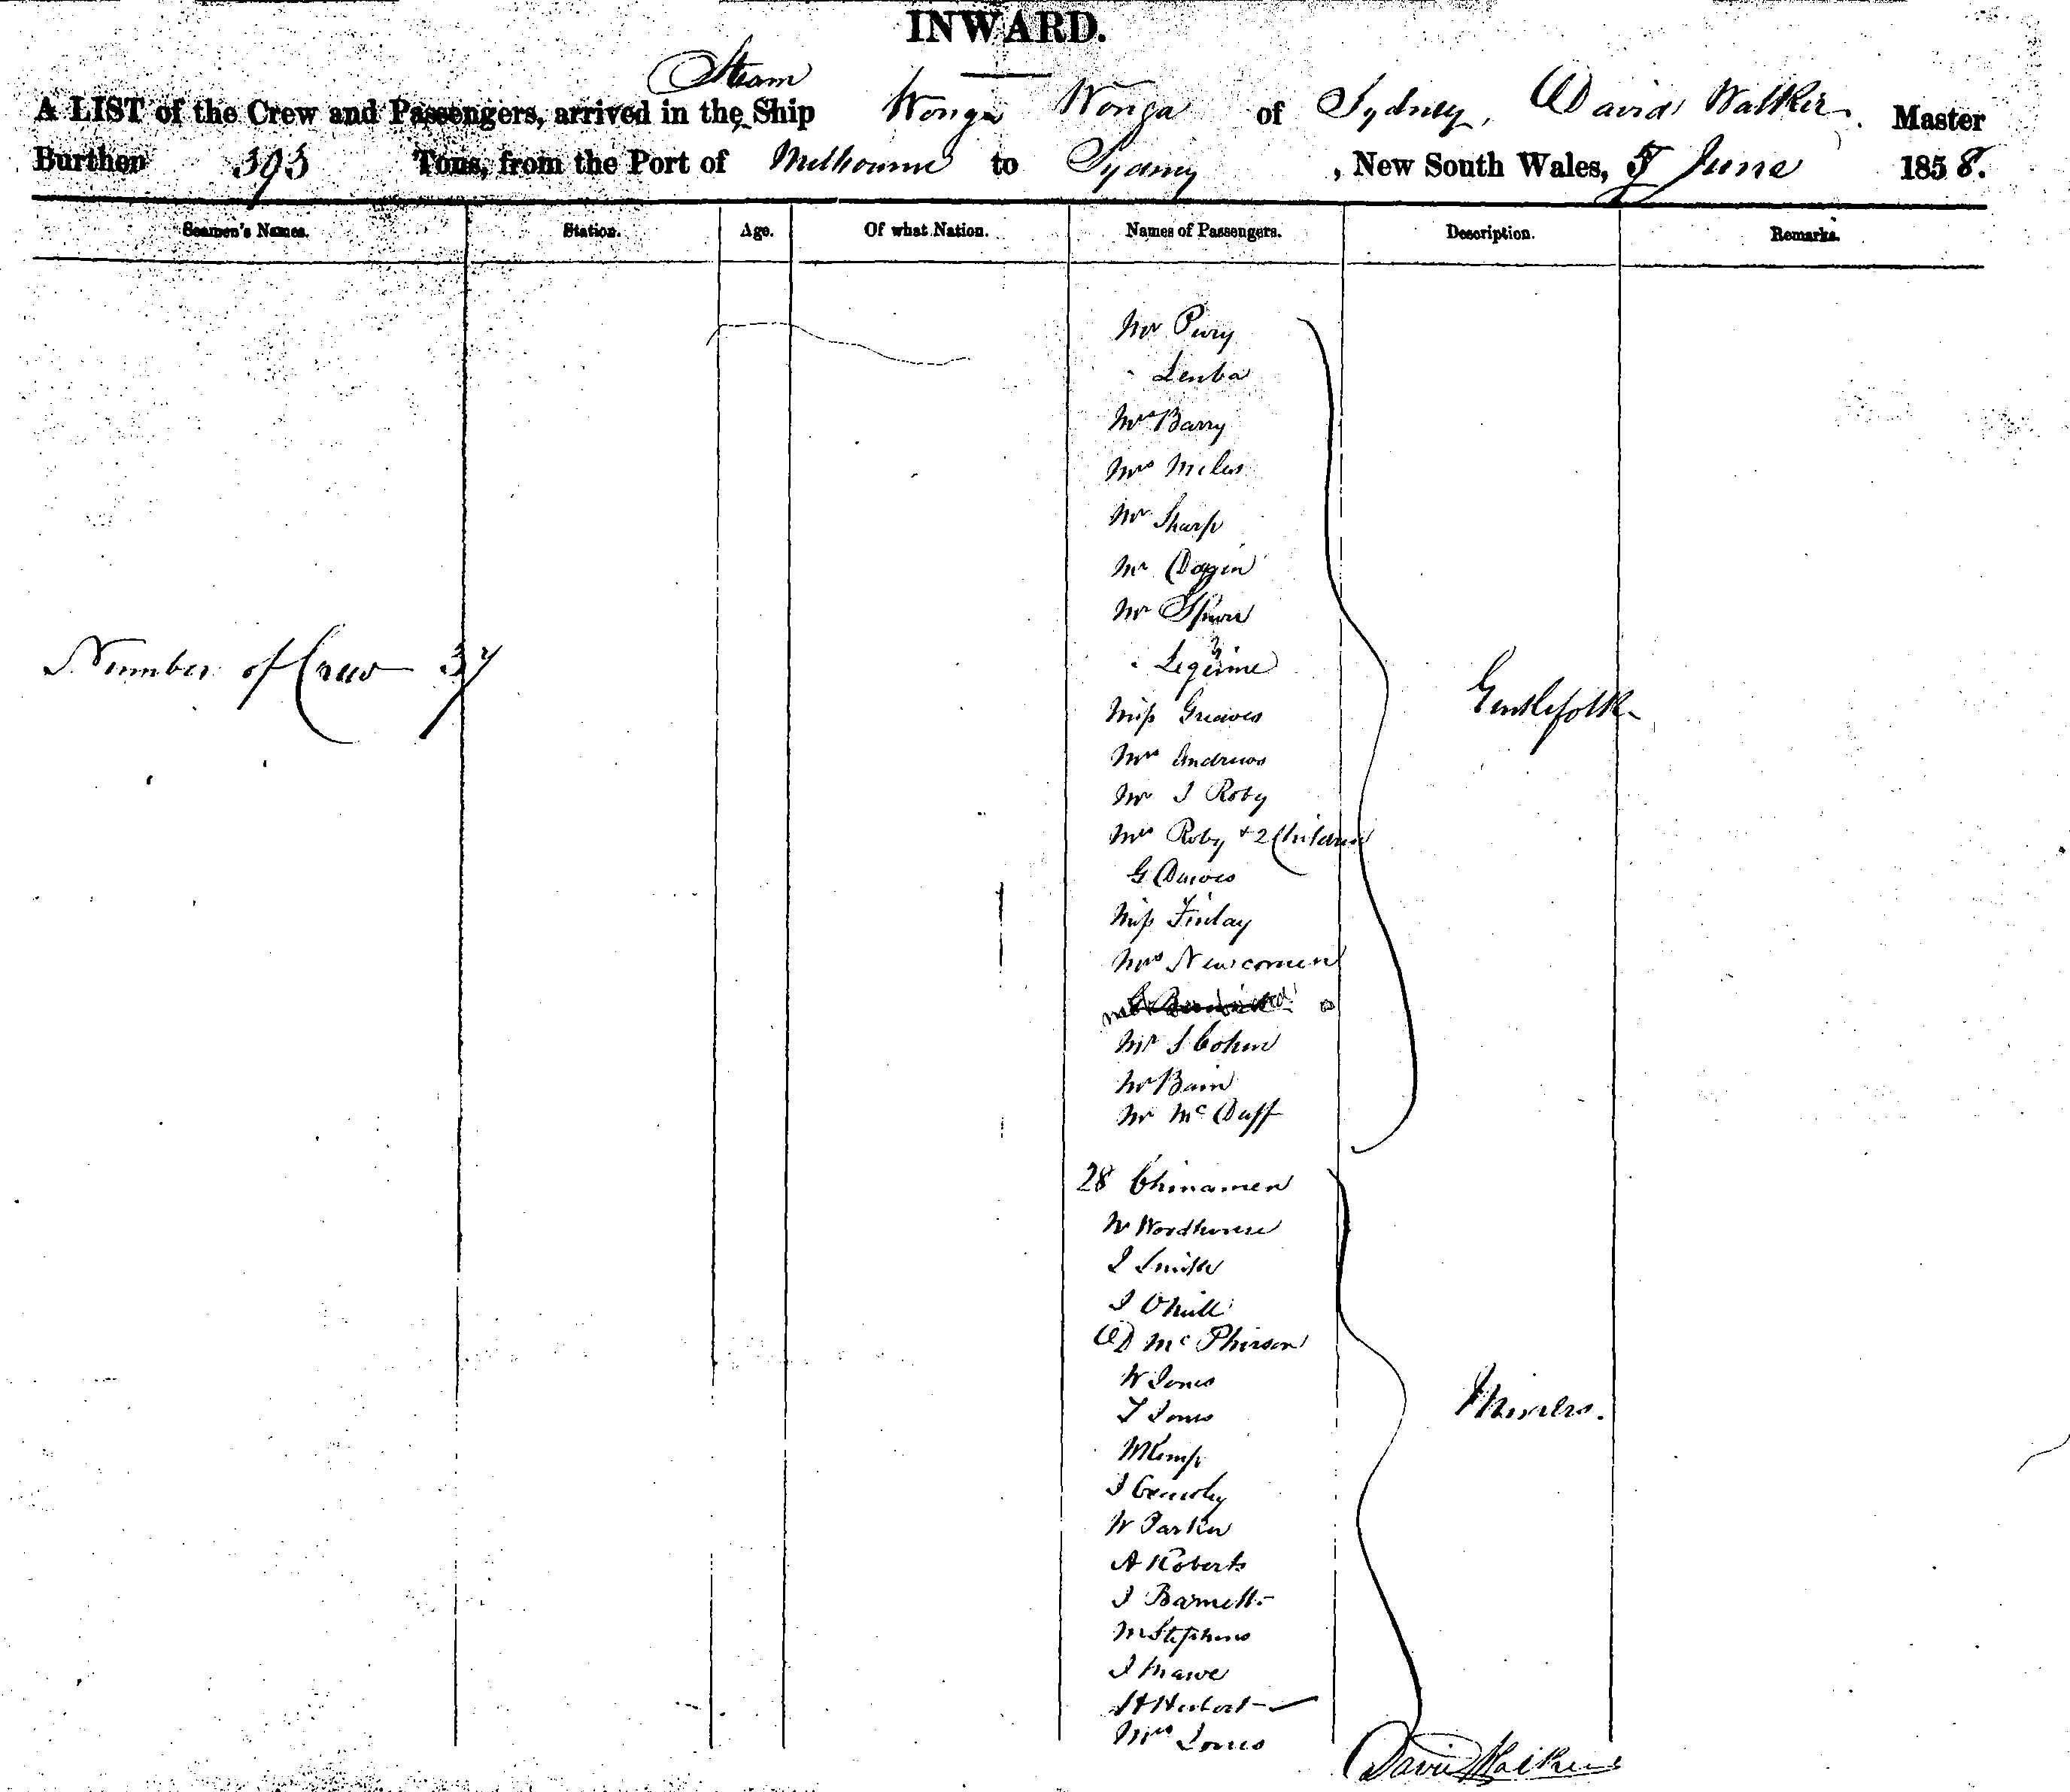 INWARD.
Steam
A LIST of the Crew and Passengers, arrived in the Ship Wonga Wonga of Sydney, David Walker Master
Burthen 393 Tons, from the Port of Melbourne to Sydney, New South Wales, 5 June 1858.
Seamen's Names. Station. Age. Of what Nation. Names of Passengers. Description. Remarks.
Mr Pury
" Leuba
Mrs Barry
Mrs Miles
Mr Sharp
Mr
Mr
"
Number of Crew 37
Gentlefolk
Miss Greaves
Mrs Andrews
Mr J Roby
Mrs Roby + 2 Children
G Davies
Miss Finlay
Mrs Newcomen
Mr S Cohen
Mr Bain
Mr McDuff
28 Chinamen
W Woodhouse
J Smith
J ONeill
D McPhirson
W Jones
Miners.
T Jones
M Kemp
J
W Parker
A Roberts
J Barnett
M Stephens
J Mawe
H Herbert
Mrs Jones
David Walker